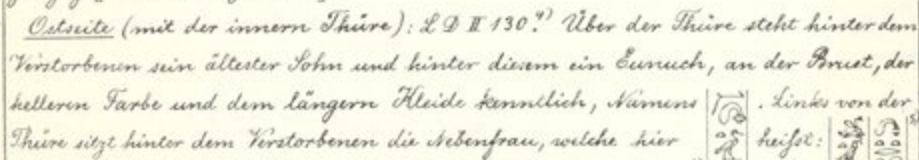 Ostseite (mit der innern Thüre): L D II 130.⁴⁾ Über der Thüre steht hinter dem
Verstorbenen sein ältester Sohn und hinter diesem ein Eunuch, an der Brust, der
helleren Farbe und dem längern Kleide kenntlich, Namens . Links von der
Thüre sitzt hinter dem Verstorbenen die Nebenfrau, welche hier heißt: